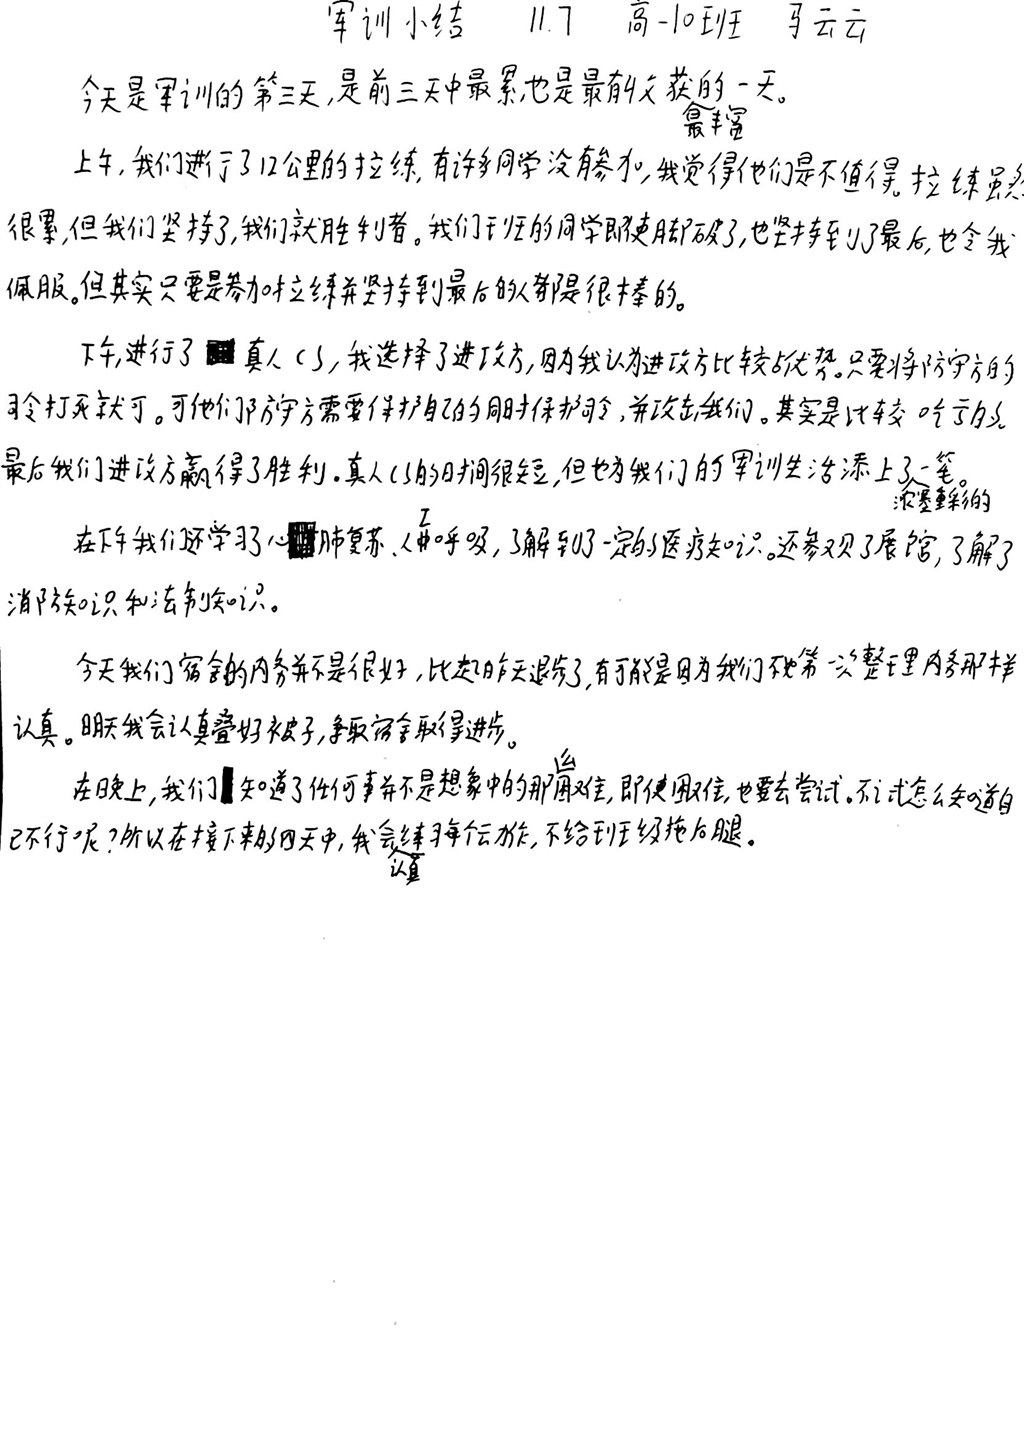 军训小结 11.7 高一10班 马云云
今天是军训的第三天，是前三天中最累也是最有收获的一天。
最丰富
上午，我们进行了12公里的拉练，有许多同学没有参加，我觉得他们是不值得。拉练虽然
很累，但我们坚持了，我们就胜利者。我们班的同学即使脚破了，也坚持到了最后，也令我
佩服。但其实只要是参加拉练并坚持到最后的人都是很棒的。
下午，进行了真人CS，我选择了进攻方，因为我认为进攻方比较占优势。只要将防守方的
司令打死就可。可他们防守方需要保护自己的同时保护司令，并攻击我们。其实是比较吃亏的。
最后我们进攻方赢得了胜利。真人CS的时间很短，但也为我们的军训生活添上了一笔。
浓墨重彩的
在下午我们还学习了心肺复苏、人工呼吸，了解到了一定的医疗知识。还参观了展馆，了解了
消防知识和法制知识。
今天我们宿舍的内务并不是很好，比起昨天退步了，有可能是因为我们不如第一次整理内务那样
认真。明天我会认真叠好被子，争取宿舍取得进步。
在晚上，我们知道了任何事并不是想象中的那么困难，即使困难，也要去尝试。不试怎么知道自
己不行呢？所以在接下来的四天中，我会练习每个动作，不给班级拖后腿。
认真